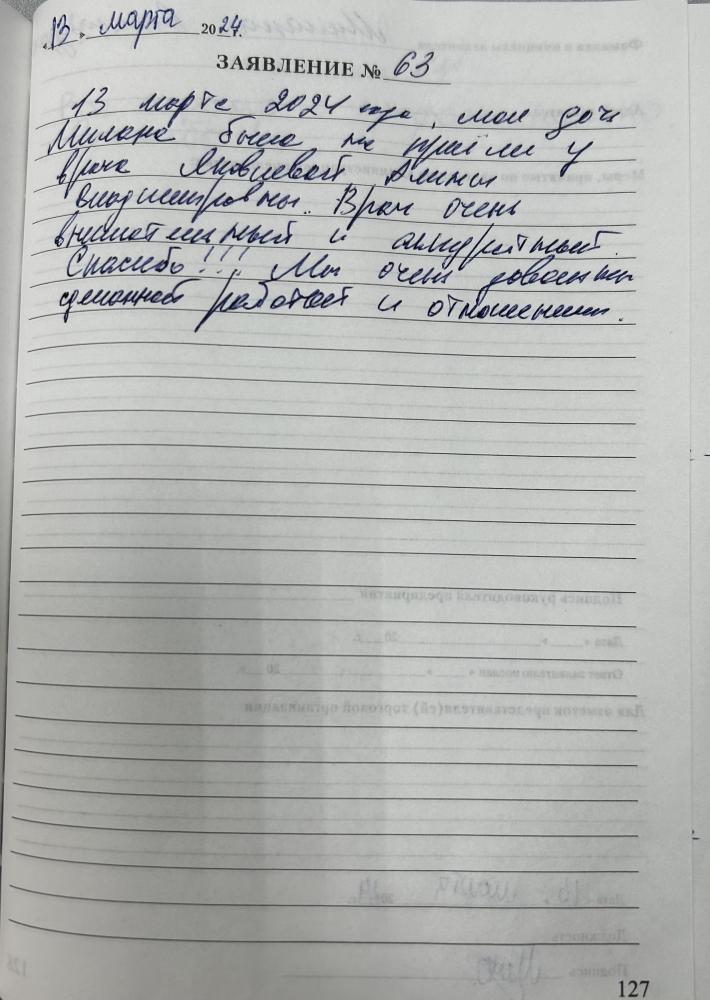 «13» марта 2024г.
ЗАЯВЛЕНИЕ № 63
13 марта 2024 года, моя дочь
Милана была на приёме у
врача Яковлевой Алины
Владимировны. Врач очень
внимательный и аккуратный.
Спасибо!!! Мы очень довольны
сделанной работай и отношением.
127